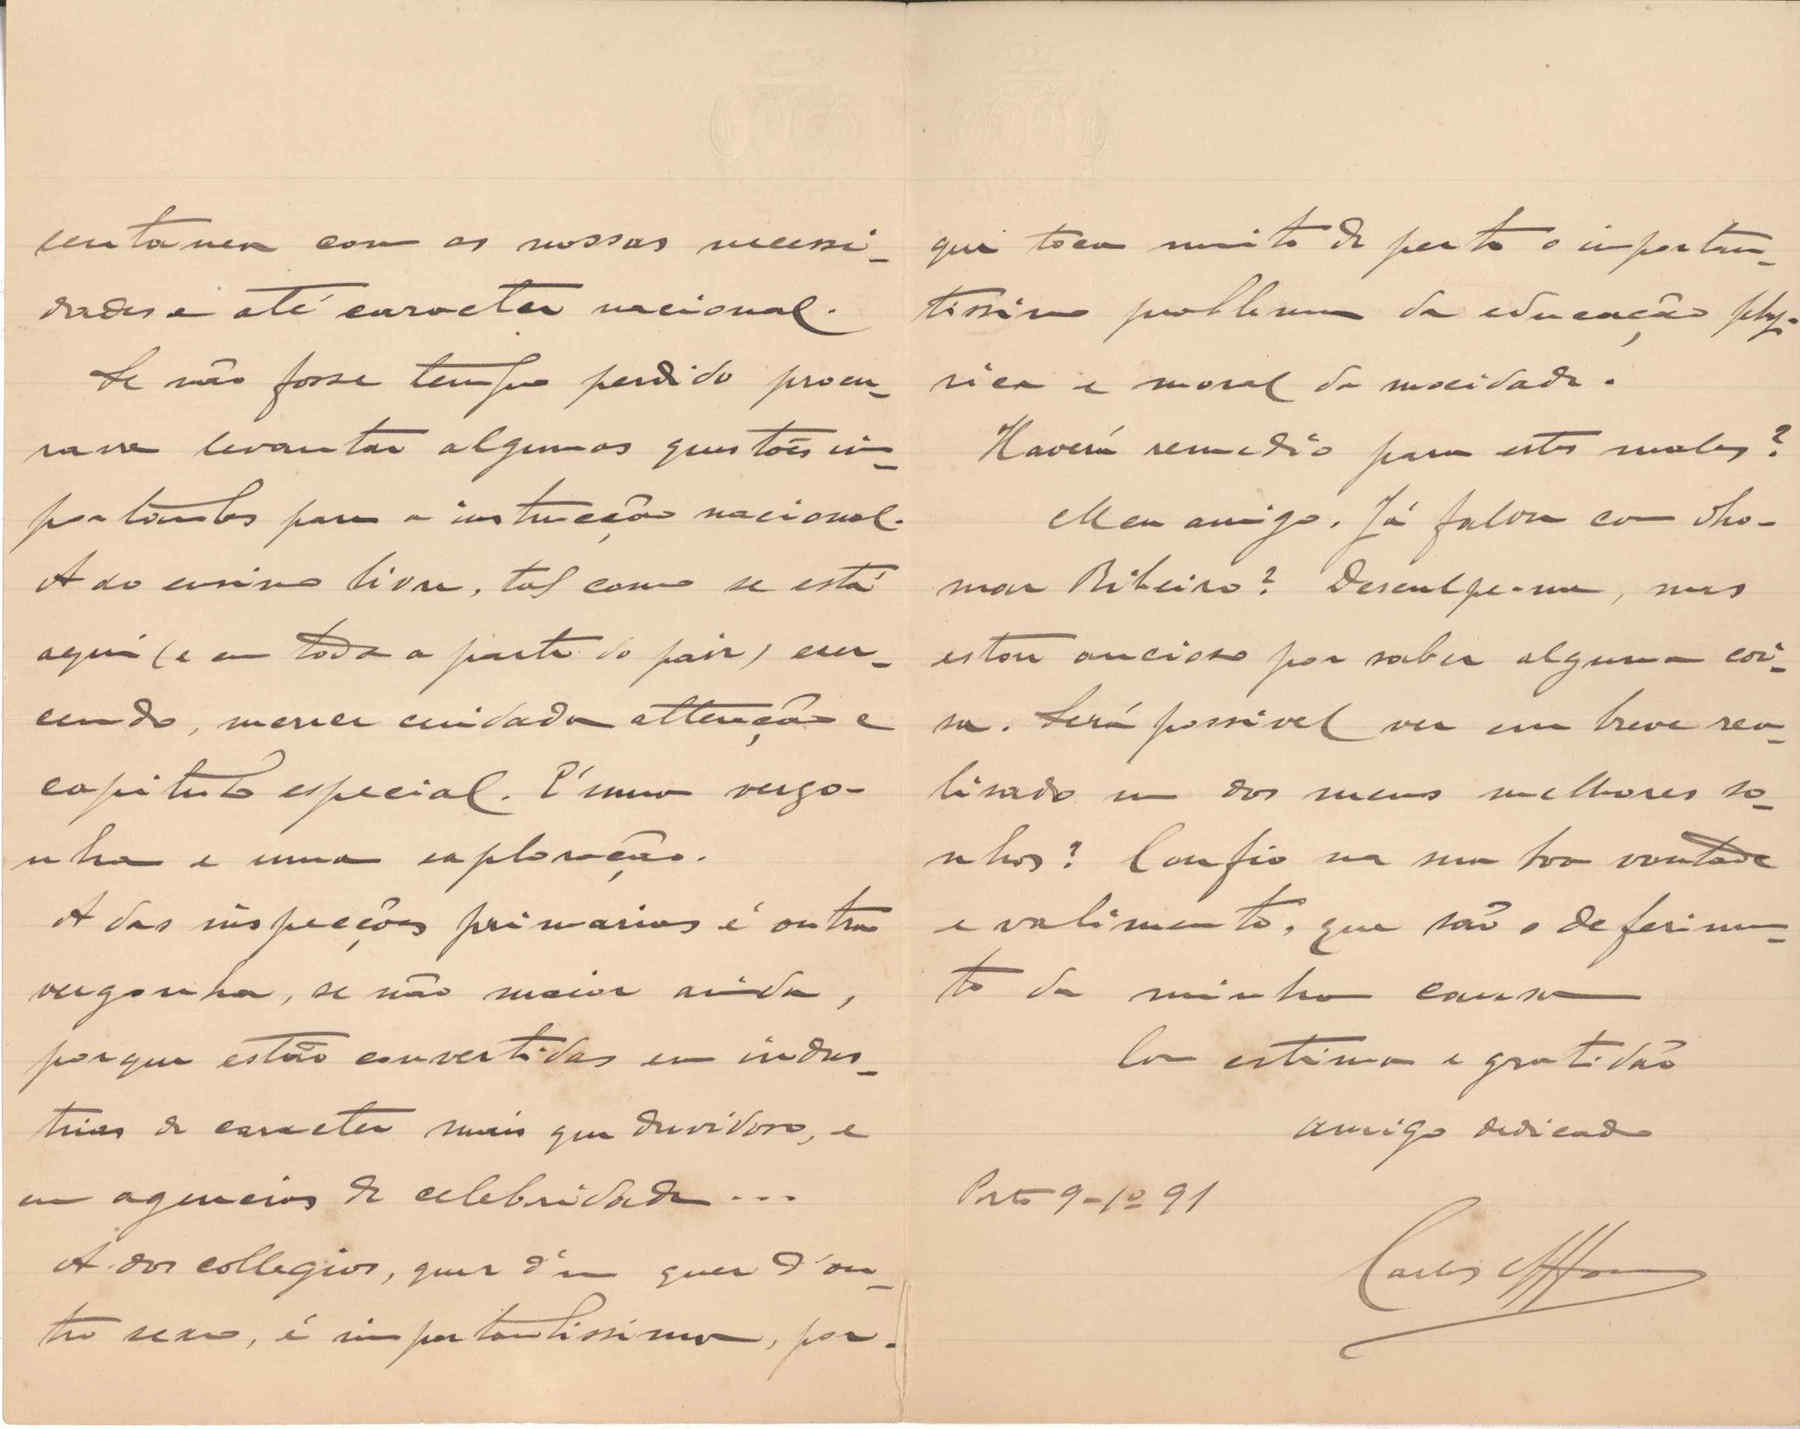 centanea com as nossas necessi-
dades e até caracter nacional.
Se não fosse tempo perdido procu-
rava levantar algumas questões im-
portantes para a instrucção nacional.
A do ensino livre, tal como se está
aqui (e em toda a parte do paiz) exer-
cendo, merece cuidada attenção e
capitulo especial. É uma vergo-
nha e uma exploração.
A das inspecções primarias é outra
vergonha, se não maior ainda,
porque estão convertidas em indus-
trias de caracter mais que duvidoso, e
em agencias de celebridade...
A dos collegios, quer d'um quer d'ou-
tro sexo, é importantissima, por-
que toca muito de perto o importan-
tissimo problema da educação phy-
sica e moral da mocidade.
Haverá remedio para estes males?
Meu amigo. Já falou com Tho-
maz Ribeiro? Desculpe-me, mas
estou ancioso por saber alguma coi-
sa. Será possivel ver em breve rea-
lisado um dos meus melhores so-
nhos? Confio na sua boa vontade
e valimento, que são o deferimen-
to da minha causa
Com estima e gratidão
amigo dedicado
Porto 9-10 91
Carlos Affonso